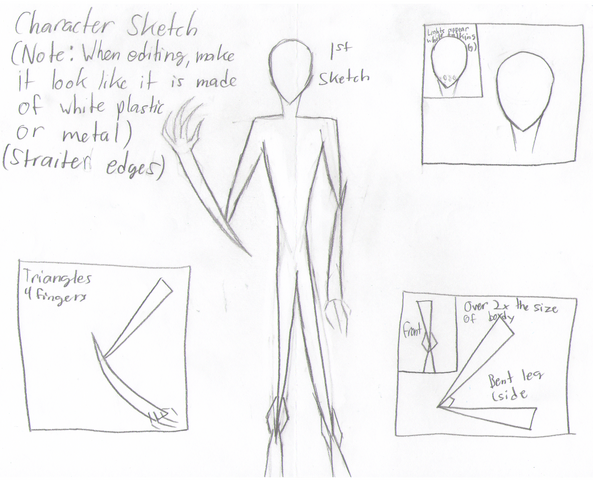 Character Sketch
(Note: When editing, make
it look like it is made
of white plastic
or metal)
(Straiter edges)
1st
Sketch
Lights appear
Triangles
4 fingers
Over 2x the size
of body
front
Bent leg
(side